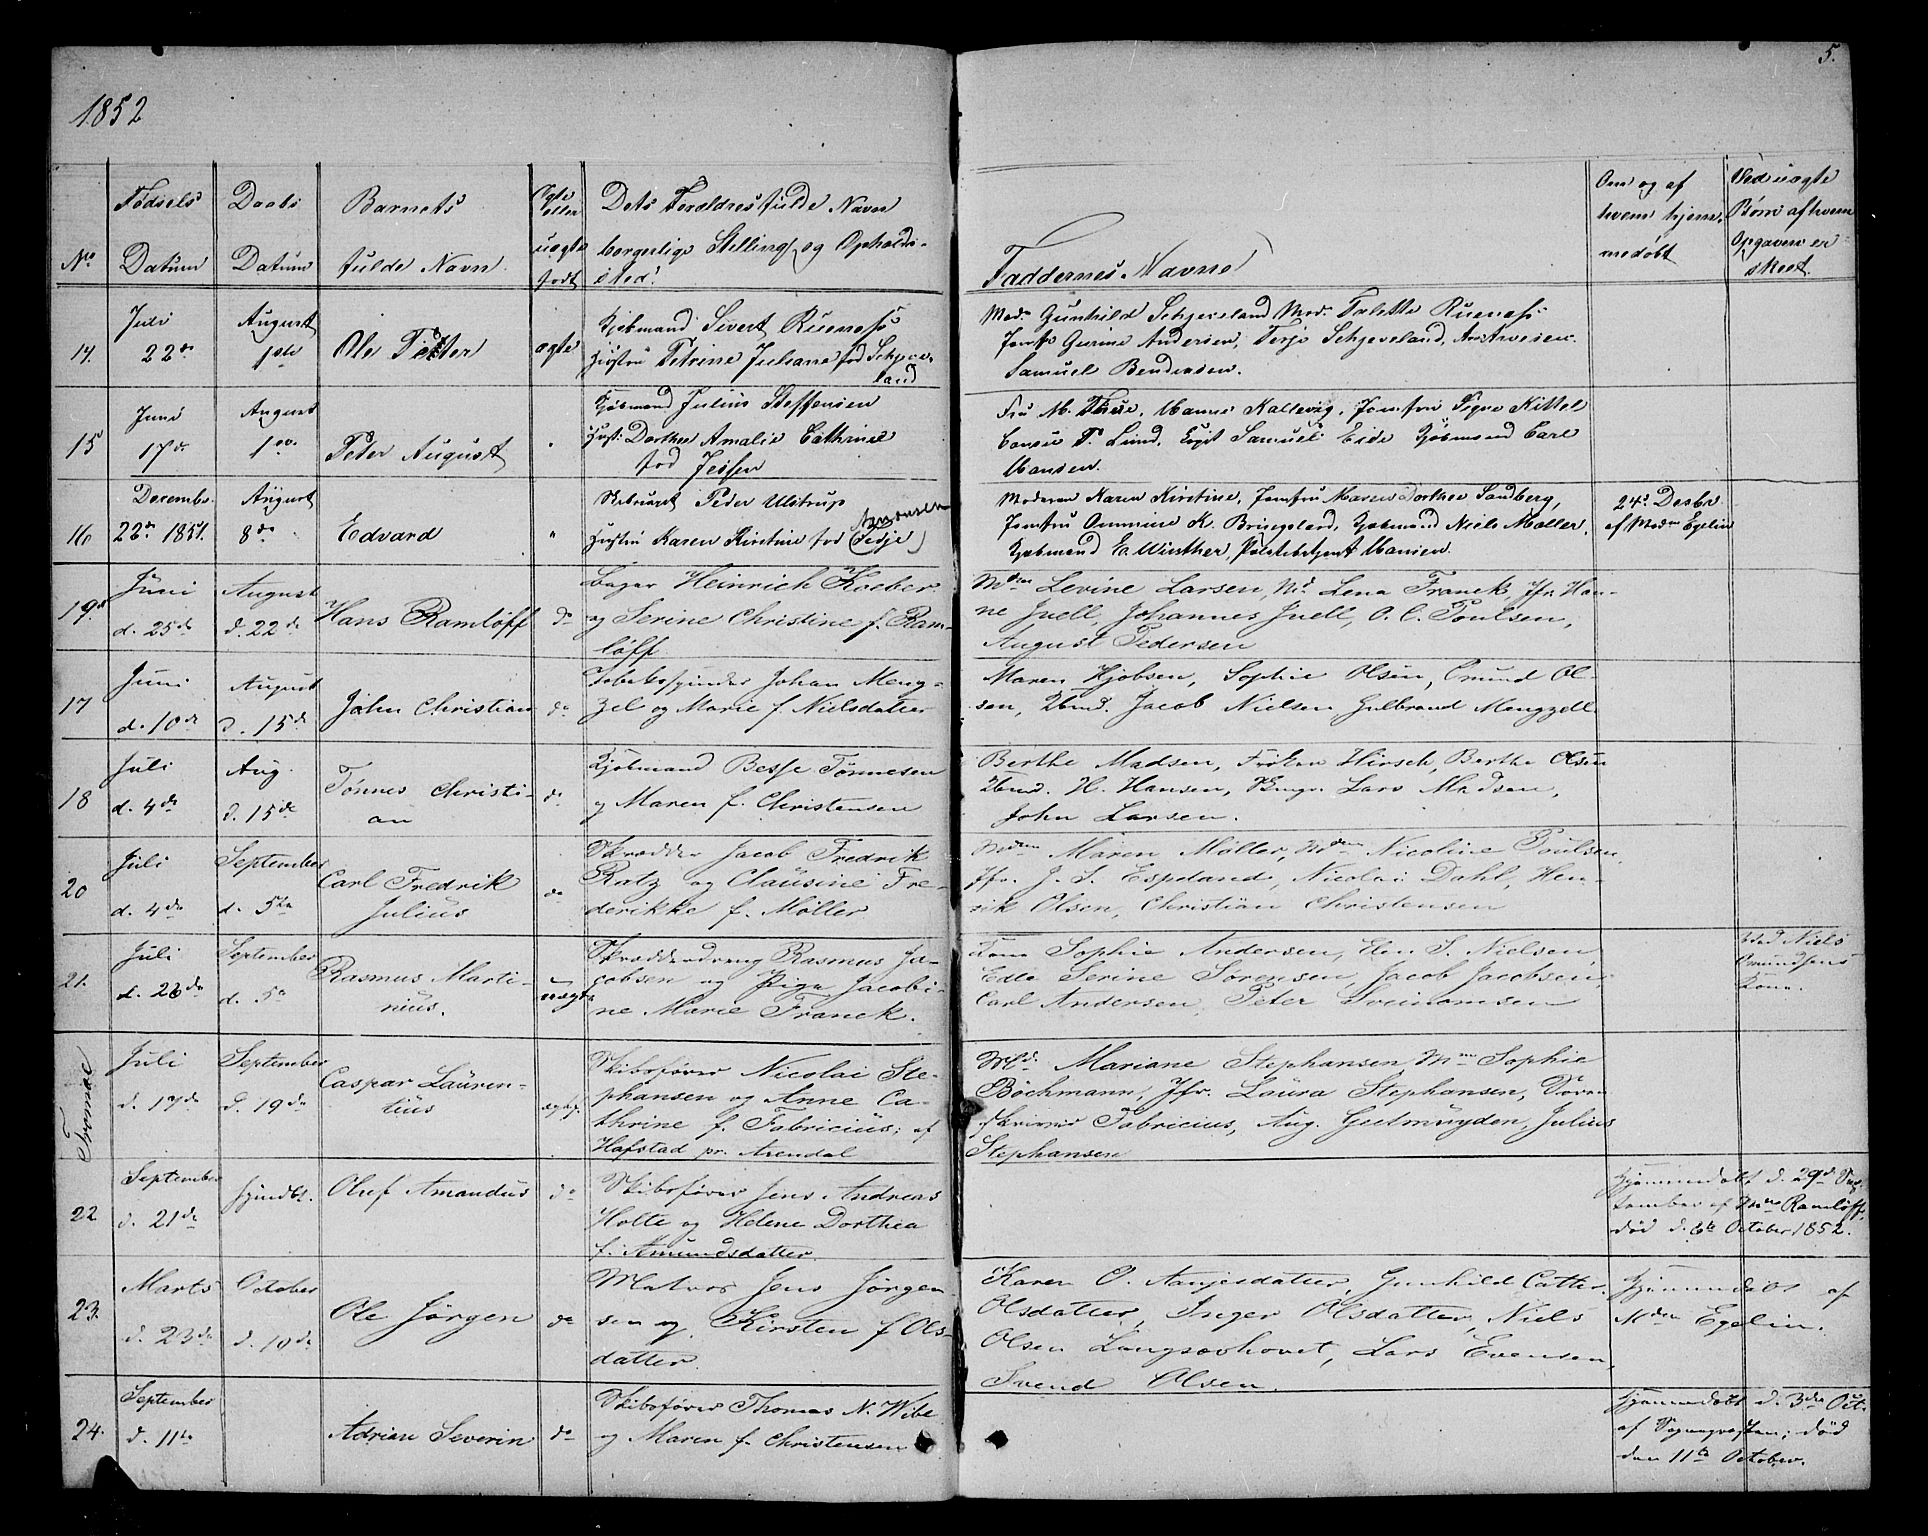 5.
1852
No
Fødsels Datum
Daabs Datum
Barnets fulde Navn
Ægte eller uægte født
Dets Forældres fulde Navn borgerlige Stilling og Opholds-
sted.
Faddernes Navne
Om og af hvem hjemmedøbt
Ved uægte Børn af hvem Opgaven er skeet.
14.
Juli 22de
August 1ste
Ole Petter
ægte
Kjøbmand Sivert Ruenæs
Hustru Petrine Juliane fød Schjeve-
land
Mad. Gunhild Schjeveland Mad. Talette Ruenæs
Jomfr Gurine Andersen, Terje Schjeveland,
Samuel Bendixsen.
15
Juni 17de
August 1ste
Peter August
Kjøbmand Julius Steffensen
Hust: Dorthea Amalie Cathrine
fød Jessen
Fru M. Thue, Hanne Kallevig, Jomfru Signe Kittel
Consul P. Lund, Samuel Eide Kjøbmand Carl
Hansen.
16
Decembr. 22de 1851.
August 8de
Edvard
Peder Ulstrup
Amonsen
Hustru Karen Kirstine fød (Tedje)
Moderen Karen Kirstine, Jomfru Maren Dorthea Sandberg,
Jomfru K. Bringeland, Kjøbmand Niels Møller,
Kjøbmand E. Winther, Politibetjent Hansen.
24de Decbr
af Madm Egelin
19de
Juni d. 25de
August d. 22de
Hans Ramløff
do
Bager Heinrich Koeber
og Serine Christine f. Ram-
løff
Mdm Levine Larsen, Md. Lena Franck, Jfr. Han-
ne Juell, Johannes Juell, O. C. Poulsen,
August Pedersen
17
Juni d. 10de
August d. 15de
John Christian
do
Tobaksspinder Johan Meng-
zel og Marie f. Nielsdatter
Maren Hjobsen, Sophie Olsen, Omund Ol-
sen, Kbmd. Jacob Nielsen, Gulbrand Mengzell.
18
Juli d. 4de
Aug. d. 15de
Tønnes Christi-
an
do
Kjøbmand Besse Tønnesen
og Maren f. Christensen
Berthe Madsen, Frøken Hirsch, Berthe Olsen
Kbmd. H. Hansen, Lars Madsen,
John Larsen.
20
Juli d. 4de
September d. 5te
Carl Fredrik
Julius
do
Skrædder Jacob Fredrik
Ratz og Clausine Fre-
derikke f. Møller
Mdm Maren Møller, Mdm Nicoline Poulsen,
Jfr. J. S. Espeland, Nicolai Dahl, Hen-
rik Olsen, Christian Christensen
21.
Juli d. 26de
September d. 5te
Rasmus Marti-
nius.
uægte
Skrædderdreng Rasmus Ja-
cobsen og Pige Jacobi-
ne Marie Franck.
Kone Sophie Andersen, Elen S. Nielsen,
Eda Serine Sørensen, Jacob Jacobsen,
Carl Andersen, Peter
Ved Niels
Omundsens
Kone.
Tromøe
Juli d. 17de
September d. 19de
Caspar Lauren-
tius
Skibsfører Nicolai Ste-
phansen og Anne Ca-
thrine f. Fabricius; af
Hafstad pr. Arendal
Md. Mariane Stephansen, Mm Sophie
Bochmann, Jfr. Laura Stephansen, Soren-
skriver Fabricius, Aug. Gutmuyden, Julius
Stephansen
22
September d. 21de
hjemdbt.
Oluf Amandus
do
Skibsfører Jens Andreas
Holte og Helene Dorthea
f. Amundsdatter
Hjemmedøbt d. 29de Sep-
tember af Mme Ramløff,
død d. 6te October 1852.
23.
Marts d. 23de
October d. 10de
Ole Jørgen
do
Matros Jens Jørgen-
sen og Kirsten f Ols-
datter.
Karen O. Aanjesdatter, Gunhild Cathr.
Olsdatter, Inger Olsdatter, Niels
Olsen Langsævhovet, Lars Evensen,
Svend Olsen.
Hjemmedøbt af
Mdm Egelin.
24.
September d. 11te
Adrian Severin
do
Skibsfører Thomas N. Wibe
og Maren f. Christensen
Hjemmedøbt d. 3die Oct.
af Sognepræsten; død
den 11te October.